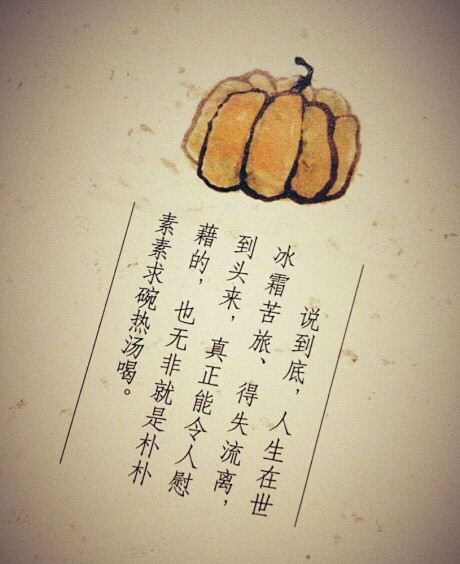 说到底，人生在世
冰霜苦旅、得失流离，
到头来，真正能令人慰
藉的，也无非就是朴朴
素素求碗热汤喝。